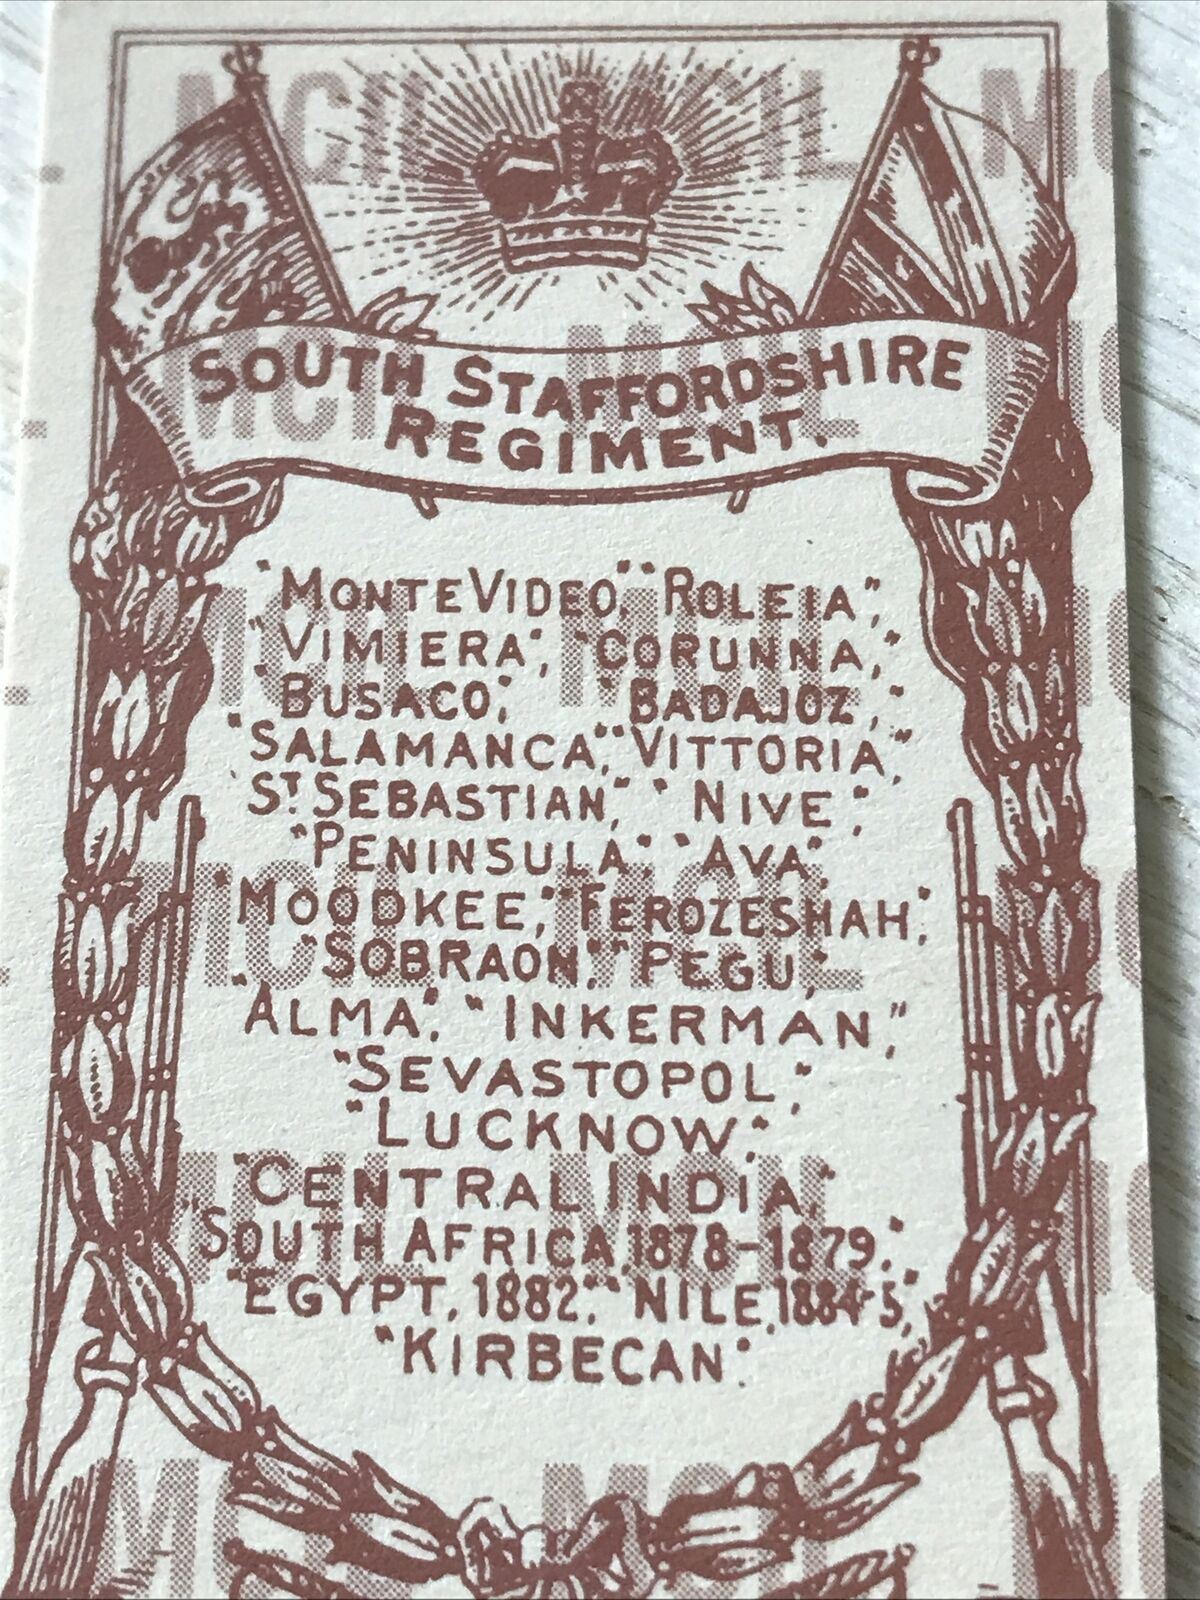 SOUTH STAFFORDSHIRE
REGIMENT.
"MONTE VIDEO," "ROLEIA",
"VIMIERA", "CORUNNA,"
"BUSACO," "BADAJOZ,"
"SALAMANCA," "VITTORIA,"
"ST SEBASTIAN," "NIVE",
"PENINSULA", "AVA",
"MOODKEE," "FEROZESHAH",
"SOBRAON", "PEGU",
"ALMA", "INKERMAN,"
"SEVASTOPOL",
"LUCKNOW",
"CENTRAL INDIA,"
"SOUTH AFRICA, 1878-1879,"
"EGYPT, 1882," "NILE, 1884-5,"
"KIRBECAN".
MCIL MCIL MC
MCIL MCIL
MCIL MCIL MC
MCIL MCIL MC
MCIL MCIL MC
MCIL MCIL